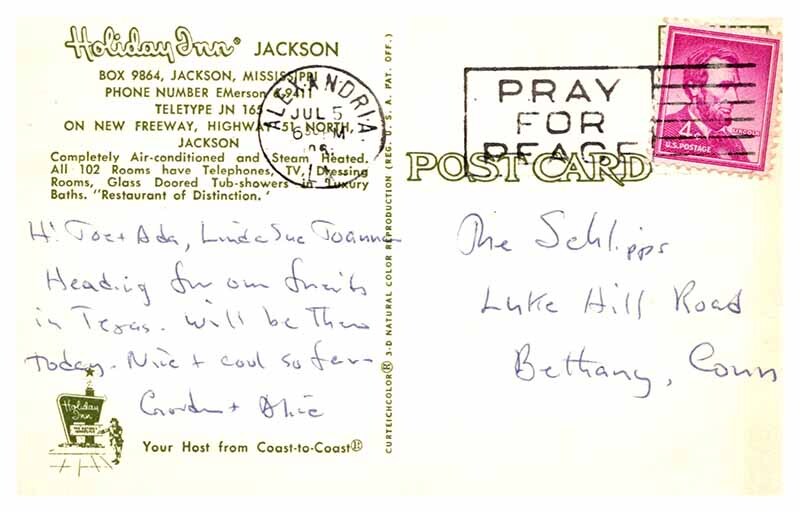 Holiday Inn® JACKSON
BOX 9864, JACKSON, MISSISSIPPI
PHONE NUMBER EMerson 6-9411
TELETYPE JN 165
ON NEW FREEWAY, HIGHWAY 51 NORTH,
JACKSON
Completely Air-conditioned and Steam Heated.
All 102 Rooms have Telephones, TV, Dressing
Rooms, Glass Doored Tub-showers in Luxury
Baths. "Restaurant of Distinction."
Hi Joe + Ada, Linda Sue Joanna
Heading for our friends
in Texas. Will be there
today. Nice + cool so far -
Gordon + Alice
Holiday Inn
Your Host from Coast-to-Coast®
CURTEICHCOLOR® 3-D NATURAL COLOR REPRODUCTION (REG. U.S.A. PAT. OFF.)
ALEXANDRIA
JUL 5
PRAY
FOR
PEACE
4¢
LINCOLN
U.S. POSTAGE
POST CARD
The Schlipps
Luke Hill Road
Bethany, Conn